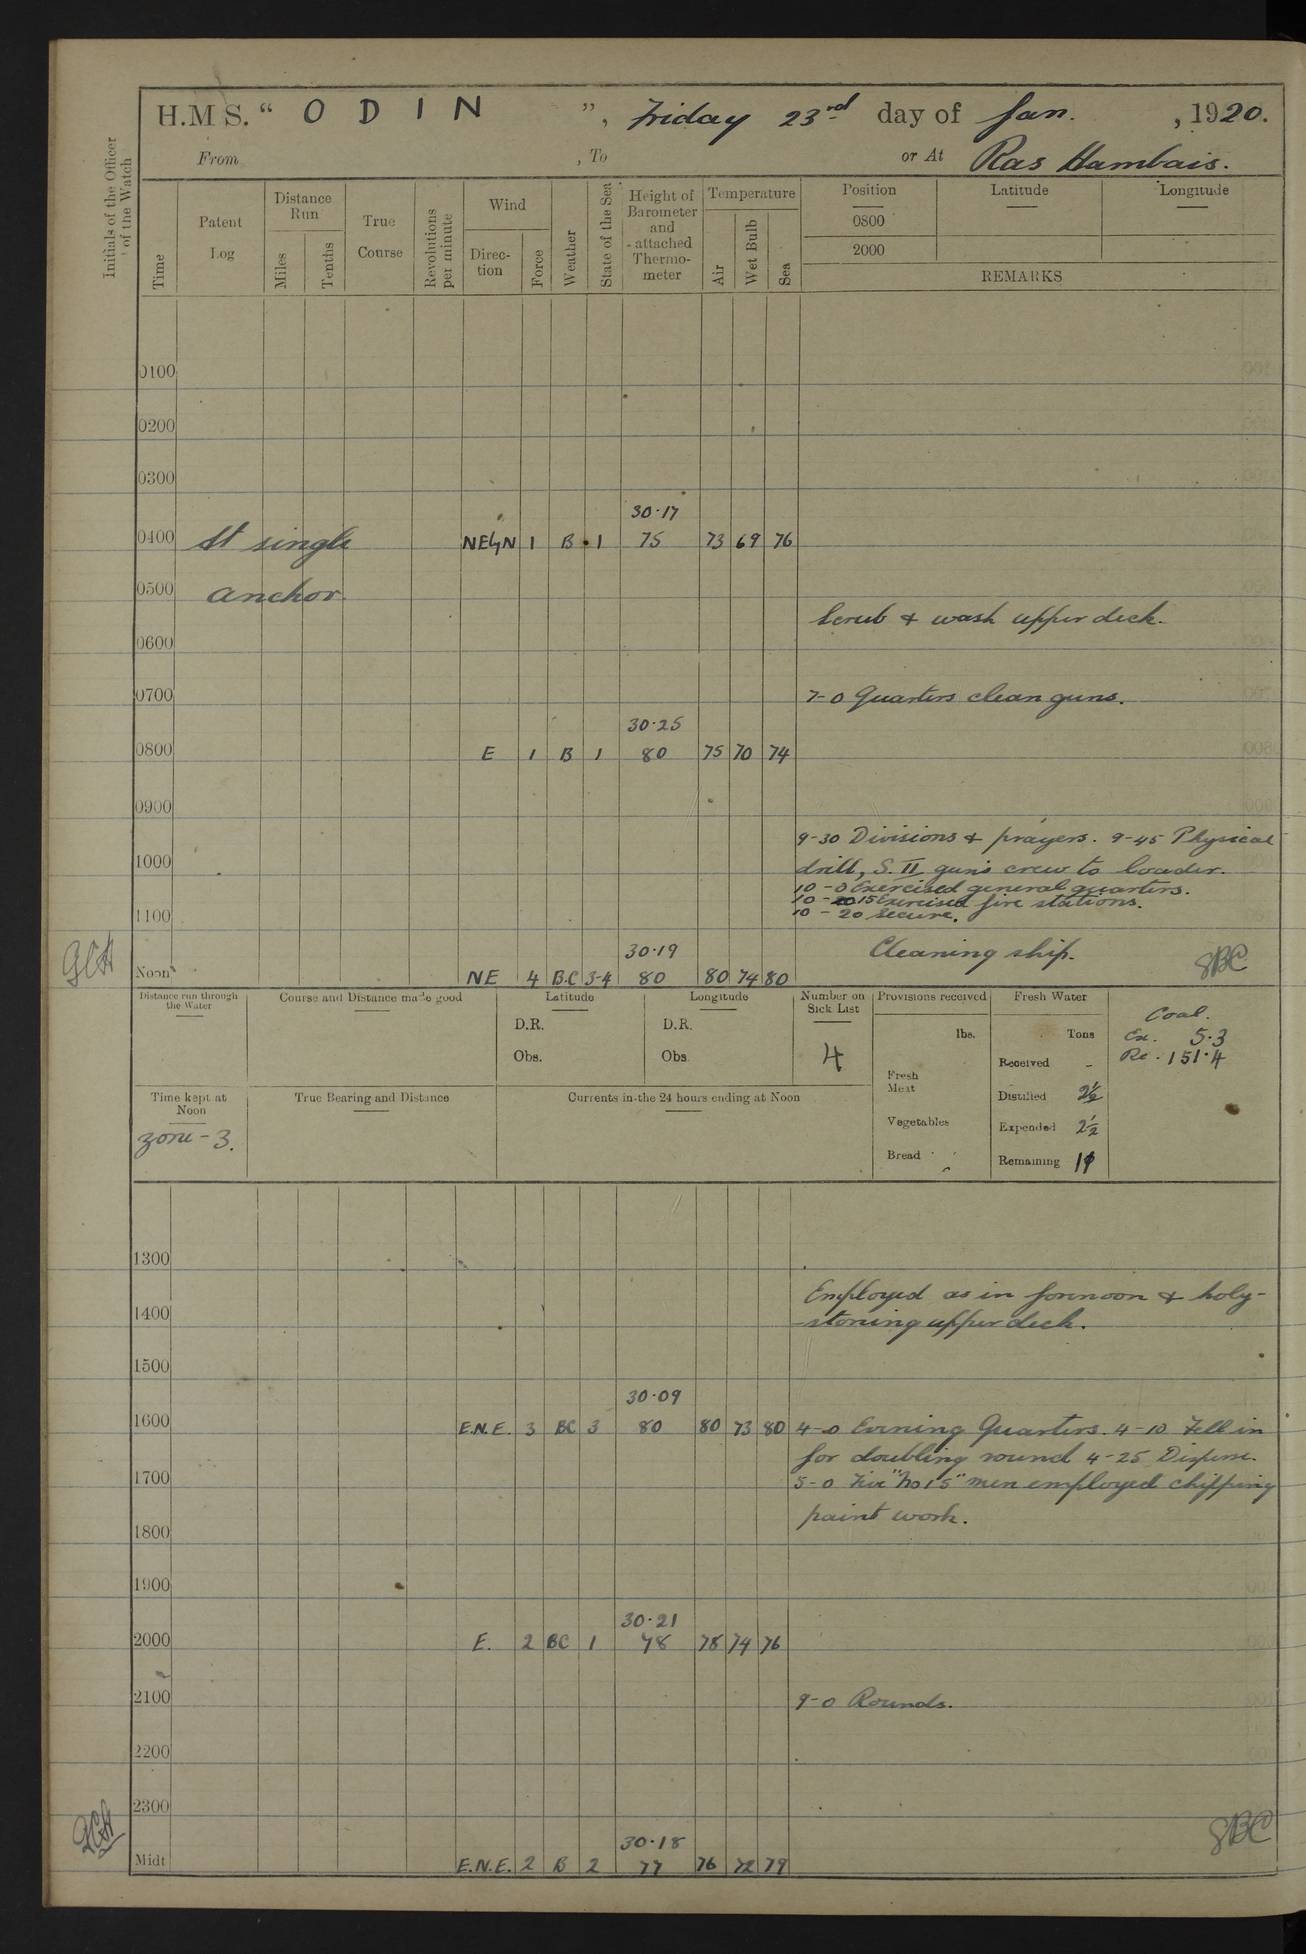 H.M S. “ O D I N ”, Friday 23rd day of Jan. , 1920.
From , To or At Ras Hambais.
Initials of the Officer of the Watch
Time
Patent Log
Distance Run
Miles
Tenths
True Course
Revolutions per minute
Wind
Direc-tion
Force
Weather
State of the Sea
Height of Barometer and attached Thermo-meter
Temperature
Air
Wet Bulb
Sea
Position Latitude Longitude
0800
2000
REMARKS
0100
0200
0300
30·17
0400 At single NE by N 1 B 1 75 73 69 76
0500 anchor.
Scrub & wash upper deck.
0600
0700 7-0 Quarters clean guns.
30·25
0800 E 1 B 1 80 75 70 74
0900
9-30 Divisions & prayers. 9-45 Physical
1000 drill, S. II guns crew to loader.
10-0 Exercised general quarters.
10-15 Exercised fire stations.
1100 10-20 Secure.
30·19 Cleaning ship.
GCH Noon NE 4 B.C 3-4 80 80 74 80 SBC
Distance run through the Water
Course and Distance made good
Latitude
D.R.
Obs.
Longitude
D.R.
Obs
Number on Sick List
4
Provisions received
lbs.
Fresh Meat
Vegetables
Bread
Fresh Water
Tons
Received -
Distilled 2½
Expended 2½
Remaining
Coal.
Ex. 5·3
Re. 151·4
Time kept at Noon
zone -3.
True Bearing and Distance
Currents in the 24 hours ending at Noon
1300
Employed as in forenoon & holy-
1400 -stoning upper deck.
1500
30·09
1600 E.N.E. 3 BC 3 80 80 73 80 4-0 Evening Quarters. 4-10 Fell in
for doubling round 4-25 Disperse.
1700 5-0 Five "No 15" men employed chipping
paint work.
1800
1900
30·21
2000 E. 2 BC 1 78 78 74 76
2100 9-0 Rounds.
2200
2300
30·18
GCH Midt E.N.E. 2 B 2 77 76 72 79 SBC